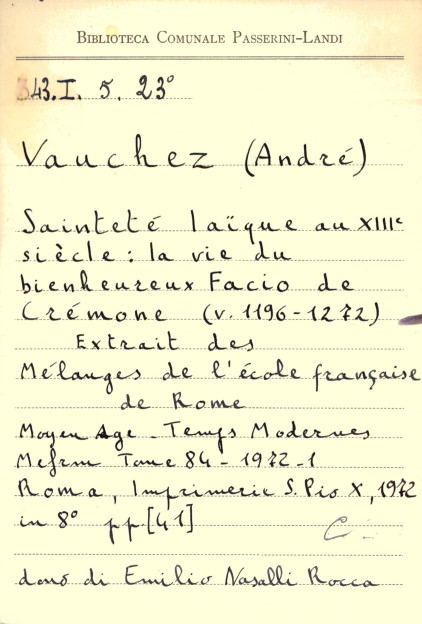 BIBLIOTECA COMUNALE PASSERINI-LANDI
343.I. 5. 23°
Vauchez (André)
Sainteté laïque au XIIIe
siècle : la vie du
bienheureux Facio de
Crémone (v. 1196-1272)
Extrait des
Mélanges de l'école française
de Rome
Moyen Age - Temps Modernes
Mefrm Tome 84 - 1972 - 1
Roma, Imprimerie S. Pio X, 1972
in 8° pp [41]
C
dono di Emilio Nasalli Rocca